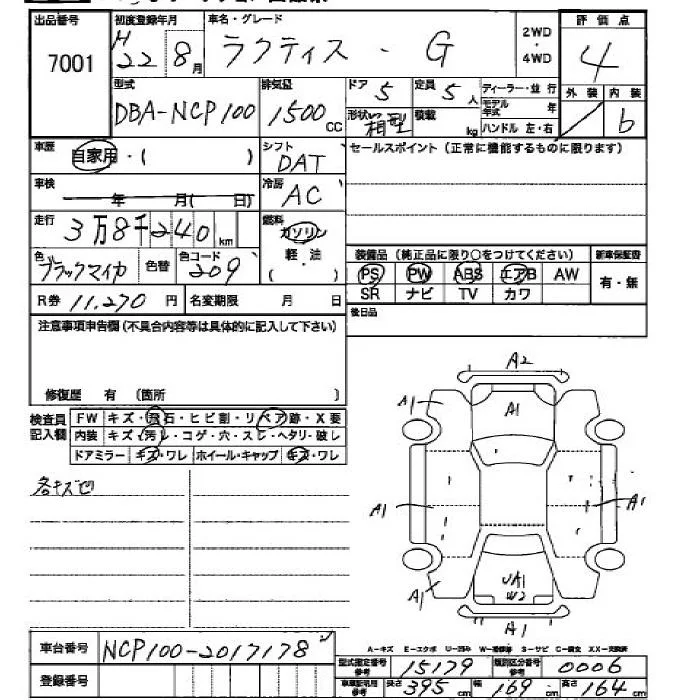 出品番号
7001
初度登録年月
H22 8月
車名・グレード
ラクティス・G
2WD
・
4WD
評価点
4
外装 内装
b
型式
DBA-NCP100
排気量
1500cc
ドア 5
定員 5人
形状 箱型
積載 kg
ディーラー・並行
モデル年式 年
ハンドル 左・右
車歴
自家用・( )
シフト
DAT
セールスポイント(正常に機能するものに限ります)
車検
年 月( 日)
冷房
AC
走行
3万8千240km
燃料
ガソリン
軽・油
( ・ )
色
ブラックマイカ
色替
色コード
209
装備品(純正品に限り○をつけてください)
PS PW ABS エアB AW
SR ナビ TV カワ
新車保証書
有・無
R券 11,270円
名変期限 月 日
後日品
注意事項申告欄(不具合内容等は具体的に記入して下さい)
修復歴 有 (箇所 )
検査員
記入欄
FW キズ・飛石・ヒビ割・リペア跡・X要
内装 キズ・汚レ・コゲ・穴・スレ・ヘタリ・破レ
ドアミラー キズ・ワレ ホイール・キャップ キズ・ワレ
各キズ也
A2
A1
A1
A1
A1
A1
UA1
W2
A1
車台番号
NCP100-2017178
登録番号
型式指定番号
参考
15179
類別区分番号
参考
0006
長さ 395cm
幅 169cm
高さ 164cm